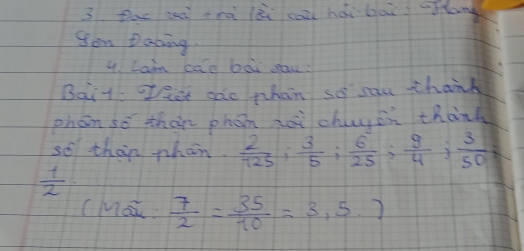 3. Đọc và trả lời câu hỏi bài: Hang
Sơn Đoòng.
4. Làm các bài sau:
Bài 1: Viết các phân số sau thành
phân số thập phân rồi chuyển thành
số thập phân. 2/125 ; 3/5 ; 6/25 ; 9/4 ; 3/50 ;
1/2.
(Mẫu: 7/2 = 35/10 = 3,5.)